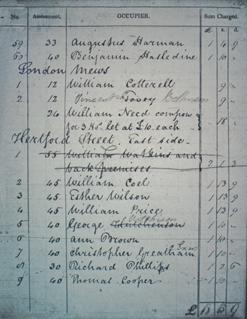 No. Assessment. OCCUPIER. Sum Charged
59 33 Augustus Harman 1 4 9
61 40 Benjamin Hasledine 1 10 -
London Mews
1 12 William Cotterell - 9 -
2 12 Vincent Tovey - 9 -
24 William Need
for 3 Hs. let at £10. each - 18 -
Hertford Street, East side.
1 55 William Watkins and
back premises 2 1 3
2 45 William Coel 1 13 9
3 45 Esther Wilson 1 13 9
4 45 William Price 1 13 9
5 40 George Hutchinson 1 10 -
6 40 Ann Brown 1 10 -
7 40 Christopher Greatham 1 10 -
8 30 Richard Phillips 1 2 6
9 40 Thomas Cooper 1 10 -
£